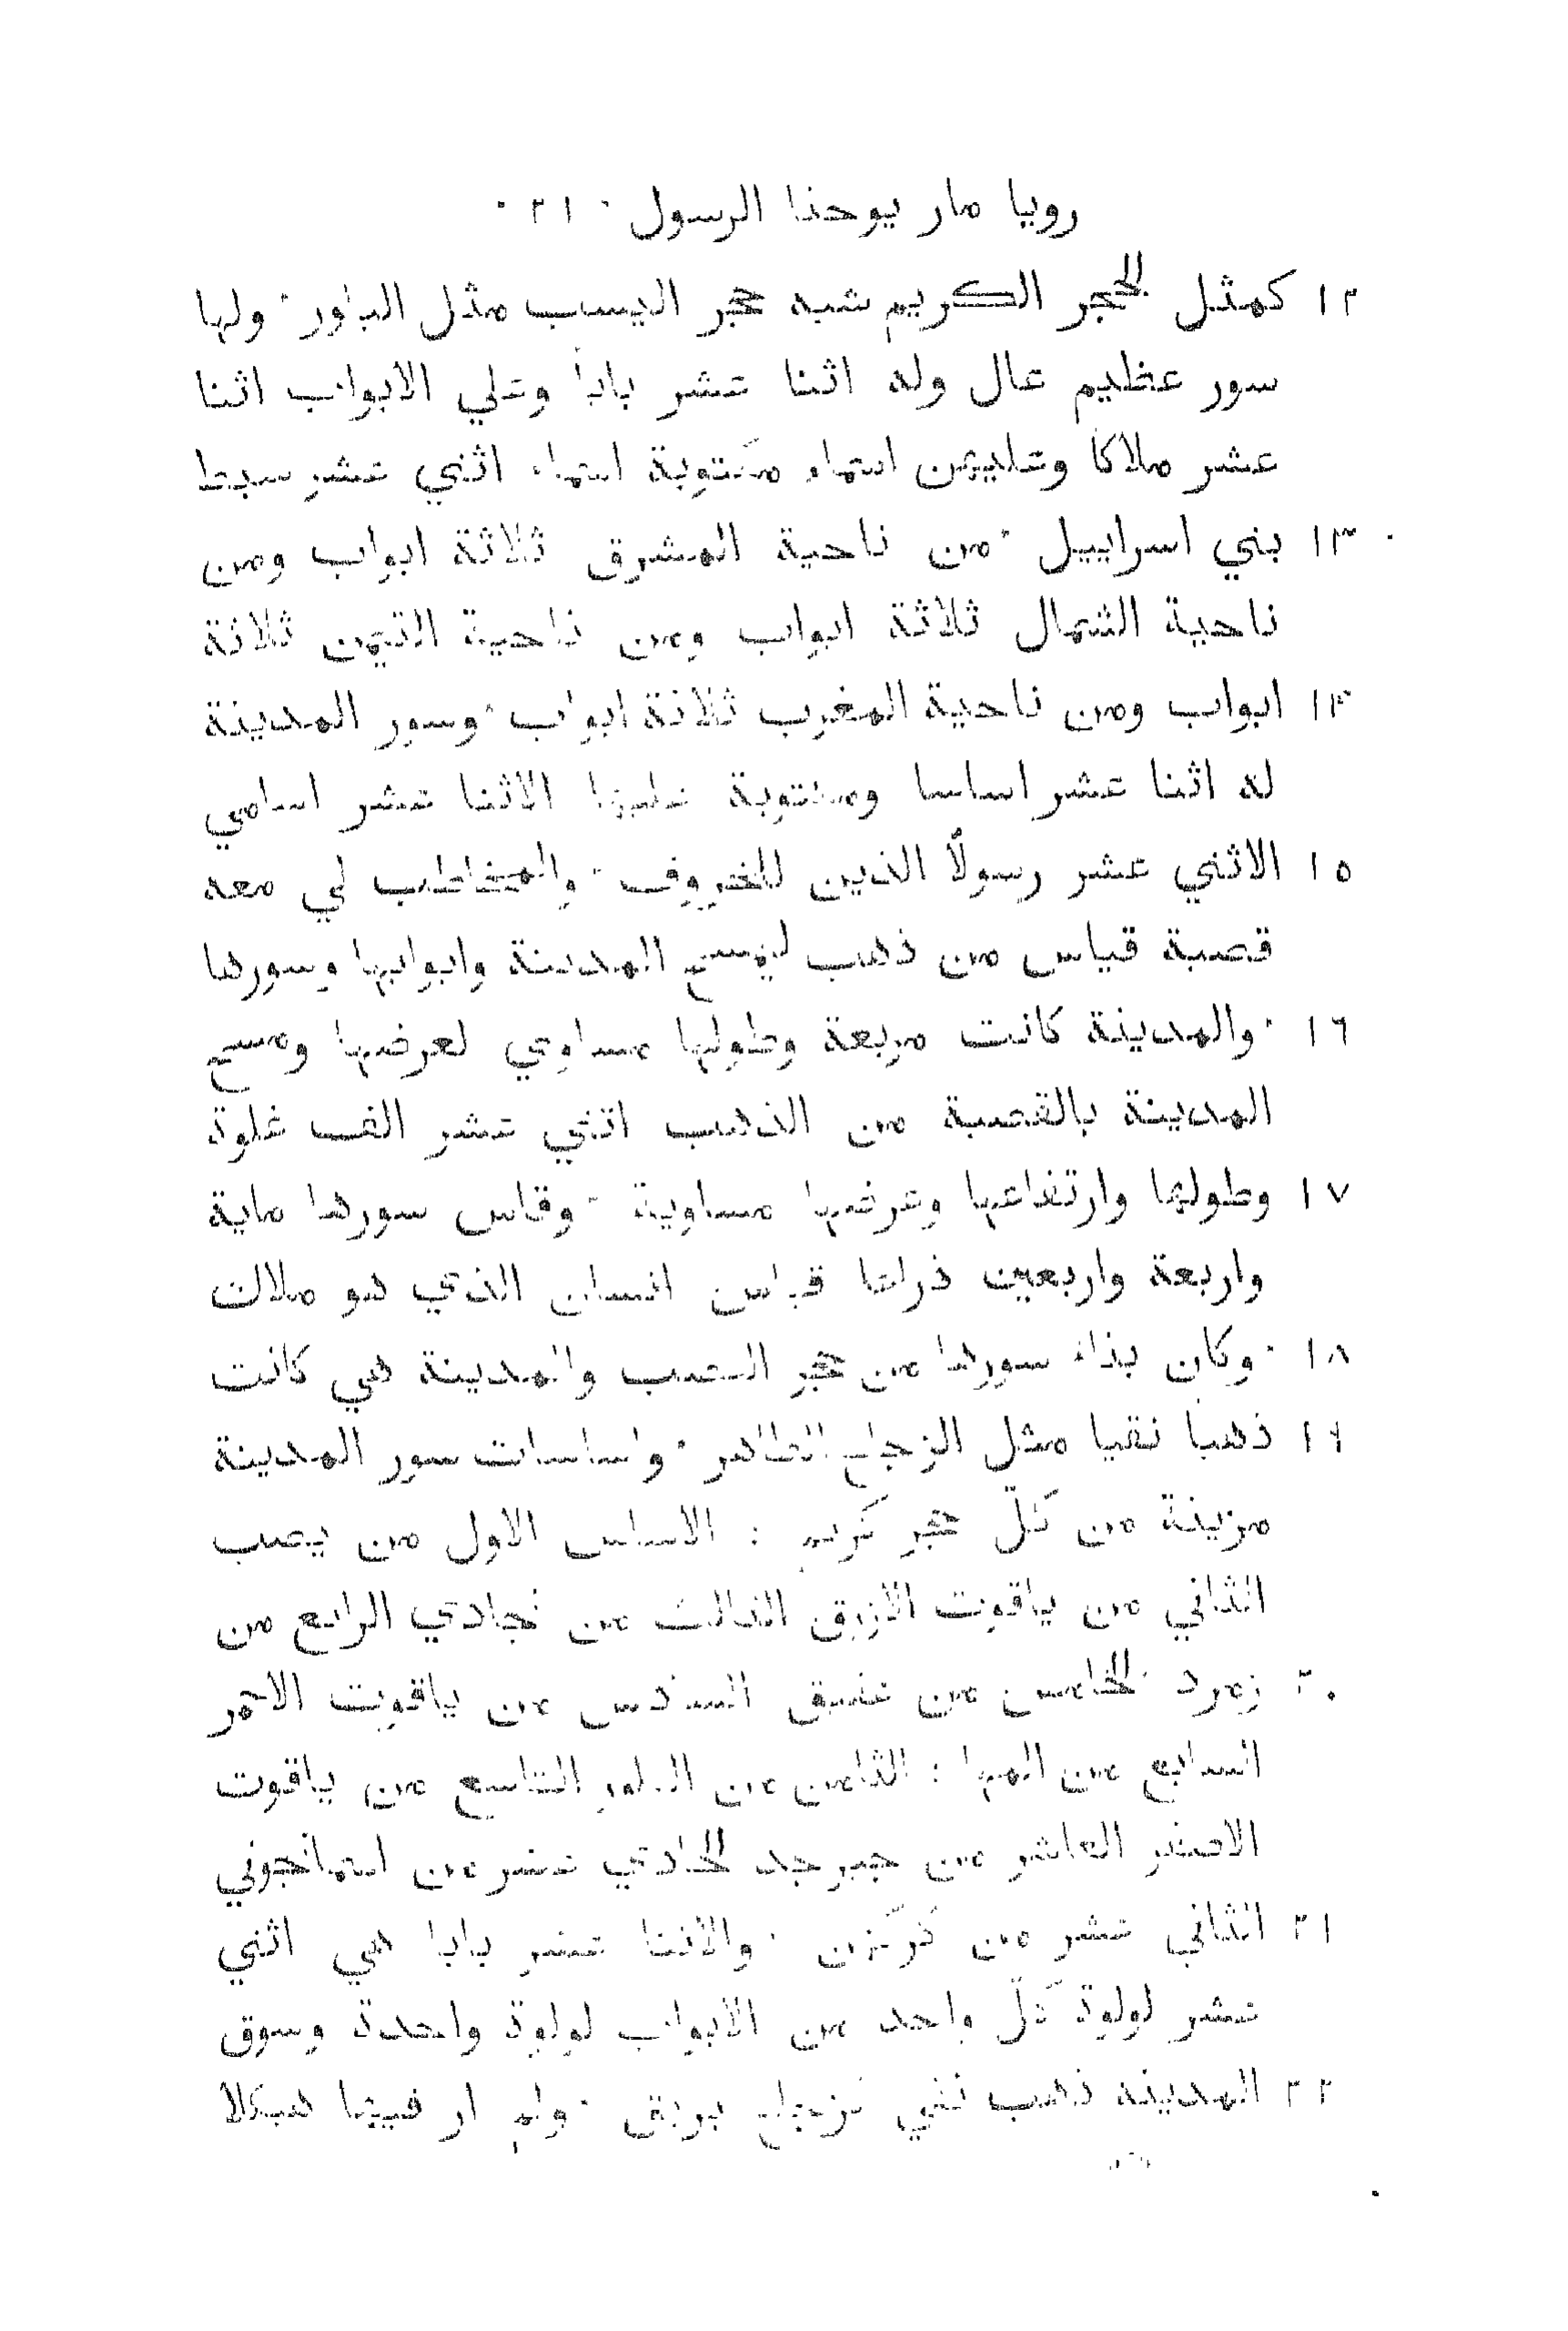 رويا مار يوحنا الرسول ٠ ٢١ ٠
١٢ كمثل الحجر الكريم شبه حجر اليسب مثل البلور ٠ ولها
سور عظيم عال وله اثنا عشر بابا وعلي الابواب اثنا
عشر ملاكا وعليهن اسماء مكتوبة اسماء اثني عشر سبط
١٣ بني اسراييل ٠ من ناحية المشرق ثلاثة ابواب ومن
ناحية الشمال ثلاثة ابواب ومن ناحية التيمن ثلاثة
١٤ ابواب ومن ناحية المغرب ثلاثة ابواب ٠ وسور المدينة
له اثنا عشر اساسا ومكتوبة عليها الاثنا عشر اسامي
١٥ الاثني عشر رسولًا الذين للخروف ٠ والمخاطب لي معه
قصبة قياس من ذهب ليمسح المدينة وابوابها وسورها
١٦ ٠ والمدينة كانت مربعة وطولها مساوي لعرضها ومسح
المدينة بالقصبة من الذهب اثني عشر الف غلوة
١٧ وطولها وارتفاعها وعرضها مساوية ٠ وقاس سورها ماية
واربعة واربعين ذراعا قياس انسان الذي هو ملاك
١٨ ٠ وكان بناء سورها من حجر اليصب والمدينة هي كانت
١٩ ذهبا نقيا مثل الزجاج الطاهر ٠ واساسات سور المدينة
مزينة من كلّ حجر كريم : الاساس الاول من يصب
الثاني من ياقوت الازرق الثالث من نجادي الرابع من
٢٠ زمرد الخامس من عقيق السادس من ياقوت الاحمر
السابع من المها : الثامن من البلور التاسع من ياقوت
الاصفر العاشر من جبرجد الحادي عشر من اسمانجوني
٢١ الثاني عشر من ٠ والاثنا عشر بابا هي اثني
عشر لولوة كلّ واحد من الابواب لولوة واحدة وسوق
٢٢ المدينة ذهب نقي كزجاج بريق ٠ ولم ار فيها هيكلا